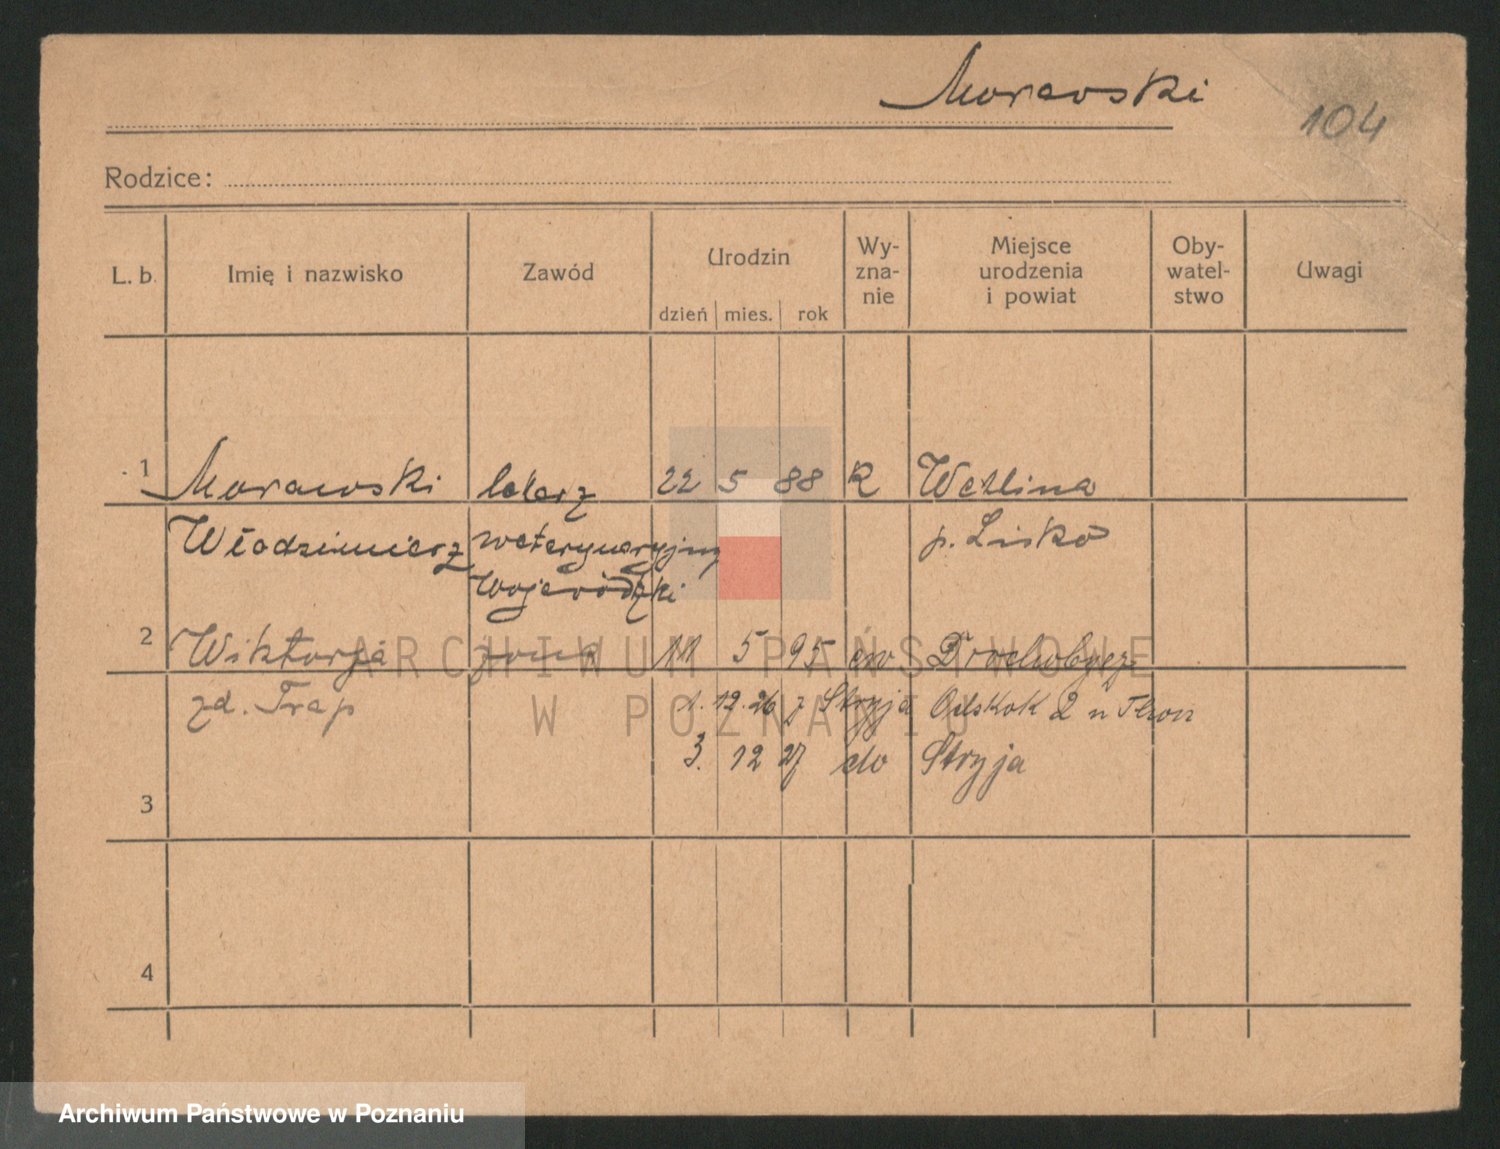 Morawski
104
Rodzice:
L. b. Imię i nazwisko Zawód Urodzin Wy-zna-nie Miejsce urodzenia i powiat Oby-watel-stwo Uwagi
dzień mies. rok
1 Morawski lekarz 22 5 88 R Wetlina
Włodzimierz weterynaryjny p. Lisko
wojewódzki
2 Wiktorja żona 11 5 95 ew Drohobycz
zd. Trap 1. 12. 26 z Stryja Odskok 2
3. 12 27 do Stryja
3
4
ARCHIWUM PAŃSTWOWE
W POZNANIU
Archiwum Państwowe w Poznaniu